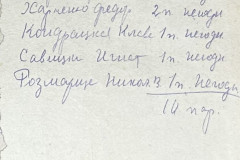 Харченко Федор 2 п. негоди
Кондрацка Клав 1 п. негоди
Савицки Игнат 1 п. негоди
Розмариц Никол 1 п. негоди
14 пар.